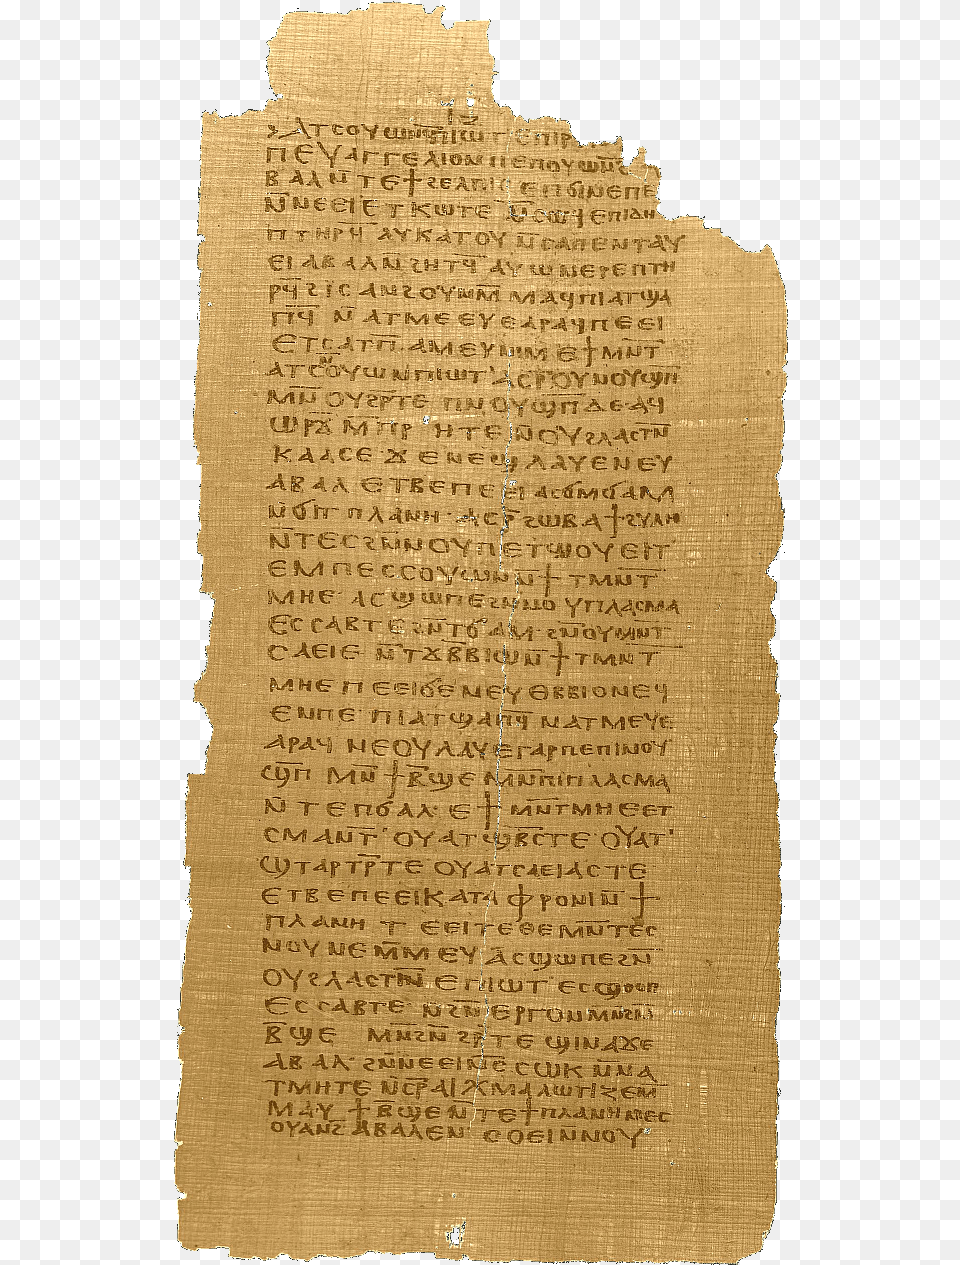 ⲓⲍ
ϩⲁⲧⲥⲟⲩⲱⲛϥ ⲡⲓⲱⲧ ⲉⲡⲓⲣ
ⲡⲉⲩⲁⲅⲅⲉⲗⲓⲟⲛ ⲡⲉ ⲡⲟⲩⲱⲛϩ
ⲃⲁⲗ ⲛ̄ⲧⲉ ϯϩⲉⲗⲡⲓⲥ ⲉⲡϭⲓⲛⲉ ⲡⲉ
ⲛ̄ⲛⲉⲉⲓ ⲉⲧⲕⲱⲧⲉ ⲛ̄ⲥⲱϥ ⲉⲡⲓⲇⲏ
ⲡⲧⲏⲣϥ ⲁⲩⲕⲁⲧⲟⲩ ⲛ̄ⲥⲁ ⲡⲉⲛⲧⲁⲩ
ⲉⲓ ⲁⲃⲁⲗ ⲛ̄ϩⲏⲧϥ ⲁⲩⲱ ⲛⲉⲣⲉⲡⲧⲏ
ⲣϥ̄ ϩⲓ ⲥⲁⲛϩⲟⲩⲛ ⲙ̄ⲙⲁϥ ⲡⲓⲁⲧϣⲁ
ⲡϥ̄ ⲛ̄ⲁⲧⲙⲉⲉⲩⲉ ⲁⲣⲁϥ ⲡⲉⲉⲓ
ⲉⲧⲥⲁⲧⲡ ⲁⲙⲉⲩ ⲛⲓⲙ ⲉϯⲙⲛ̄ⲧ
ⲁⲧⲥⲟⲩⲱⲛ ⲡⲓⲱⲧ ⲁⲥⲣ̄ ⲟⲩⲛⲟⲩϣⲡ̄
ⲙⲛ̄ ⲟⲩϩⲣ̄ⲧⲉ ⲡⲛⲟⲩϣⲡ̄ ⲇⲉ ⲁϥ
ⲱⲣϫ̄ ⲙ̄ⲡⲣⲏⲧⲉ ⲛ̄ⲟⲩϩⲗⲁⲥⲧⲛ̄
ⲕⲁⲁⲥⲉ ϫⲉ ⲛⲉϣ ⲗⲁⲩⲉ ⲛⲉⲩ
ⲁⲃⲁⲗ ⲉⲧⲃⲉ ⲡⲉⲉⲓ ⲁⲥϭⲙϭⲁⲙ
ⲛ̄ϭⲓ ⲧⲡⲗⲁⲛⲏ ⲁⲥⲣ̄ ϩⲱⲃ ⲁϯϩⲩⲗⲏ
ⲛ̄ⲧⲉⲥ ϩⲛ̄ⲛ ⲟⲩⲡⲉⲧϣⲟⲩⲉⲓⲧ
ⲉⲙⲡⲉⲥⲥⲟⲩⲱⲛ ⲛ̄ϯⲧⲙⲛ̄ⲧ
ⲙⲏⲉ ⲁⲥϣⲱⲡⲉ ϩⲛ̄ⲛ ⲟⲩⲡⲗⲁⲥⲙⲁ
ⲉⲥⲥⲁⲃⲧⲉ ϩⲛ̄ ⲧϭⲁⲙ ϩⲛ̄ ⲟⲩⲙⲛ̄ⲧ
ⲥⲁⲉⲓⲉ ⲛ̄ⲧϫⲃ̄ⲃⲓⲱ ⲛ̄ϯⲧⲙⲛ̄ⲧ
ⲙⲏⲉ ⲡⲉⲉⲓ ϭⲉ ⲛⲉⲩⲑⲃ̄ⲃⲓⲟ ⲛⲉϥ
ⲉⲛ ⲡⲉ ⲡⲓⲁⲧϣⲁⲡϥ̄ ⲛ̄ⲁⲧⲙⲉⲩⲉ
ⲁⲣⲁϥ ⲛⲉⲟⲩⲗⲁⲩⲉ ⲅⲁⲣ ⲡⲉ ⲡⲓⲛⲟⲩ
ϣⲡ̄ ⲙⲛ̄ ϯⲃ̄ϣⲉ ⲙⲛ̄ ⲡⲓⲡⲗⲁⲥⲙⲁ
ⲛ̄ⲧⲉ ⲡϭⲁⲗ ⲉϯⲙⲛ̄ⲧⲙⲏⲉ ⲉⲧ
ⲥⲙⲁⲛⲧ̄ ⲟⲩⲁⲧϣⲃ̄ⲧⲥ ⲧⲉ ⲟⲩⲁⲧ
ϣⲧⲁⲣⲧⲣ̄ ⲧⲉ ⲟⲩⲁⲧⲥⲁⲉⲓⲁⲥ ⲧⲉ
ⲉⲧⲃⲉ ⲡⲉⲉⲓ ⲕⲁⲧⲁⲫⲣⲟⲛⲓ ⲛ̄ϯ
ⲡⲗⲁⲛⲏ ⲧⲉⲉⲓ ⲧⲉ ⲑⲉ ⲙⲛ̄ⲧⲉⲥ
ⲛⲟⲩⲛⲉ ⲙ̄ⲙⲉⲩ ⲁⲥϣⲱⲡⲉ ϩⲛ̄ⲛ
ⲟⲩϩⲗⲁⲥⲧⲛ̄ ⲉⲡⲓⲱⲧ ⲉⲥϣⲟⲟⲡ
ⲉⲥⲥⲁⲃⲧⲉ ⲛ̄ϩⲛ̄ⲉⲣⲅⲟⲛ ⲙⲛ̄ ϩⲛ̄
ⲃ̄ϣⲉ ⲙⲛ̄ ϩⲛ̄ϩⲣ̄ⲧⲉ ϣⲓⲛⲁ ϫⲉ
ⲁⲃⲁⲗ ϩⲛ̄ ⲛⲉⲉⲓ ⲛ̄ⲥⲥⲱⲕ ⲛ̄ⲛⲁ
ⲧⲙⲏⲧⲉ ⲛ̄ⲥⲣ̄ ⲁⲓⲭⲙⲁⲗⲱⲧⲓⲍⲉ ⲙ̄
ⲙⲁⲩ ϯⲃ̄ϣⲉ ⲛ̄ⲧⲉ ϯⲡⲗⲁⲛⲏ ⲛⲉⲥ
ⲟⲩⲁⲛϩ ⲁⲃⲁⲗ ⲉⲛ